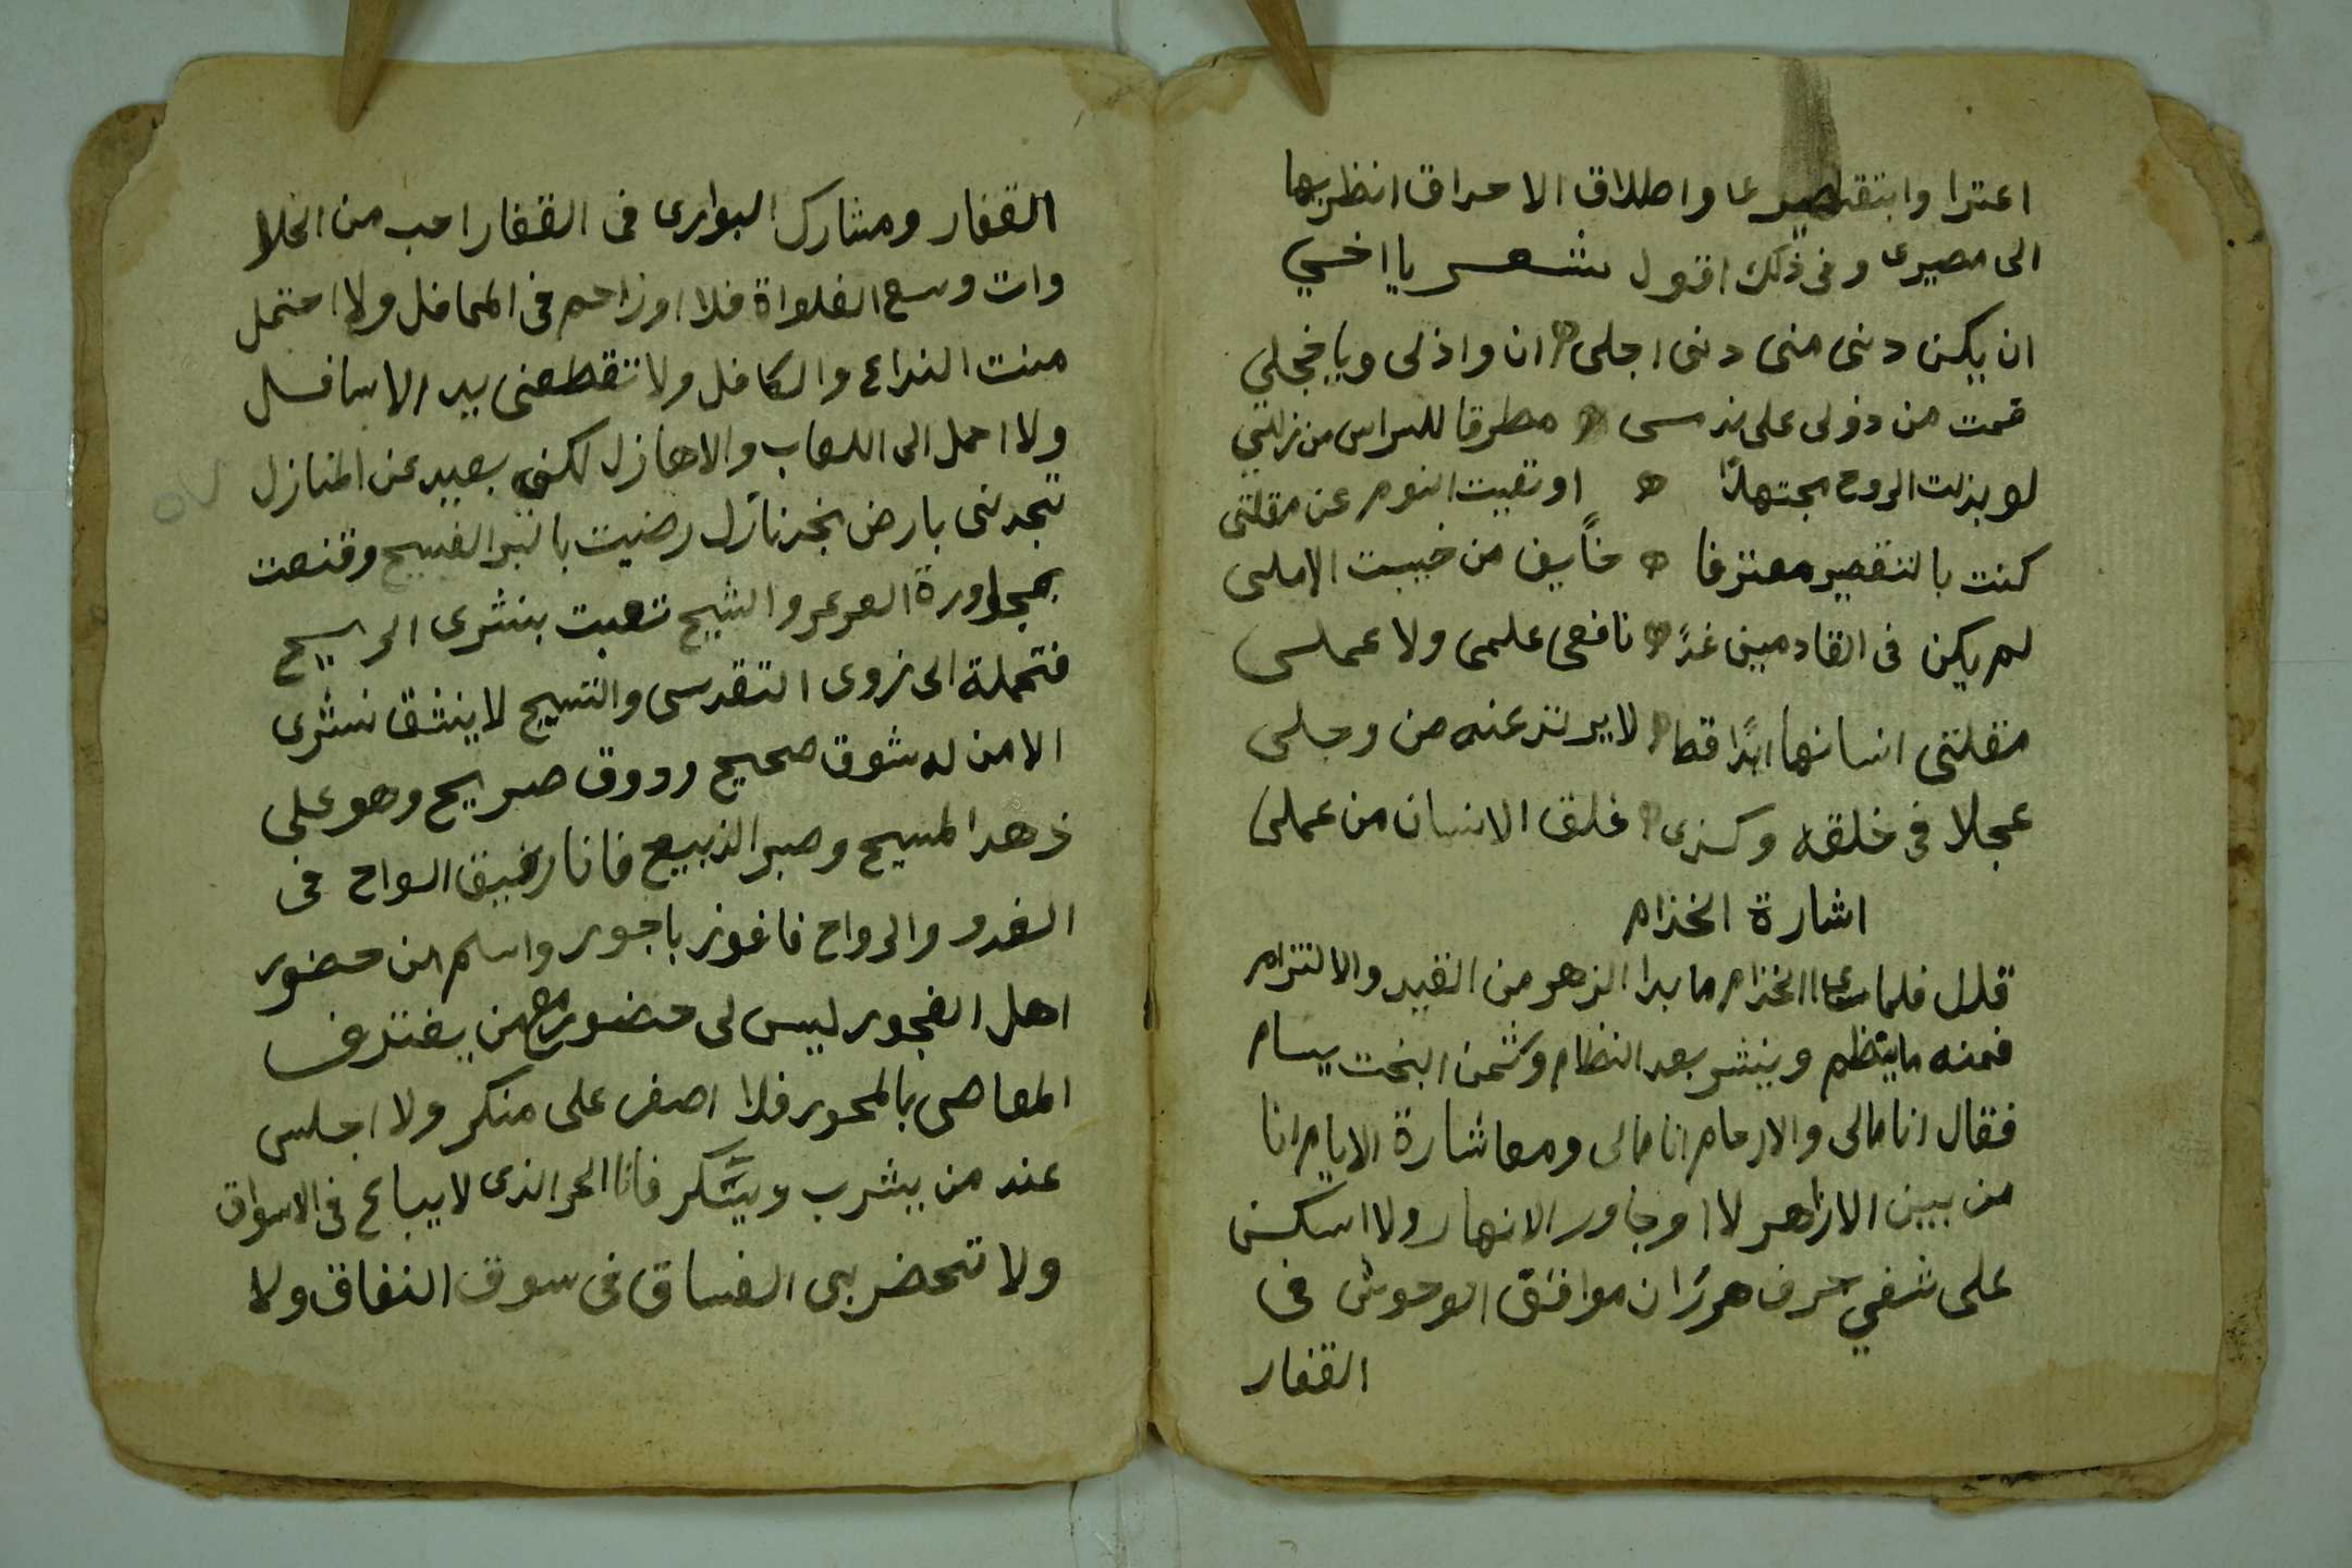 اعترا وابتقصيرى واطلاق الاحداق انظر بها
الى مصيرى وفى ذلك اقول شعر يا اخي
ان يكن دنى منى دنى اجلى ان واذلى ويا خجلي
قمت من ذولى على ندمى مطرقا للراس من زلتي
لو بذلت الروح مجتهدًا او نقيت النوم عن مقلتى
كنت بالتقصير معترفا خأيف من خيبت الاملى
لم يكن فى القادمين غدً نافعى علمى ولا عملى
مقلتى انسانها ابدًا قط لا يرتد عنه من وجلى
عجلا فى خلقه وكذى خلق الانسان من عملى
اشارة الخذام
قلل فلما راى الخذام ما بدا الزهر من القيد والالتزام
فمنه ما ينتظم وينشر بعد النظام وثمن البخت يسام
فقال انا مالى والازحام انا مالى ومعاشارة الايام انا
من بين الازاهر لا اوجاور الانهار ولا اسكن
على شفي حرف هرزان موافق الوحوش فى
القفار
القفار ومشارك البوارى فى القفار احب من الخلا
وات وسع الفلواة فلا اوزاحم فى المحافل ولا احتمل
منت الذراع والكافل ولا تقطعنى يد الاسافل
ولا احمل الى اللعاب والاهازل لكني بعيد عن المنازل
تجدنى بارض نجد نازل رضيت بالبر الفسيح وقنعت
بمجاورة العرعر والشيح تعبت بنشرى الريح
فتحملة الى ذوى التقدسى والتسبيح لا ينشق نشرى
الا من له شوق صحيح وذوق صريح وهو على
زهد المسيح وصبر الذبيح فانا رفيق السواح فى
الغدو والرواح فافوز باجور واسلم من حضور
اهل الفجور ليس لى حضور مع من يفترف
المعاصى بالمحور فلا اصفر على منكر ولا اجلس
عند من يشرب ويسكر فانا الحر الذى لا يباع فى الاسواق
ولا تحضر بى الفساق فى سوق النفاق ولا